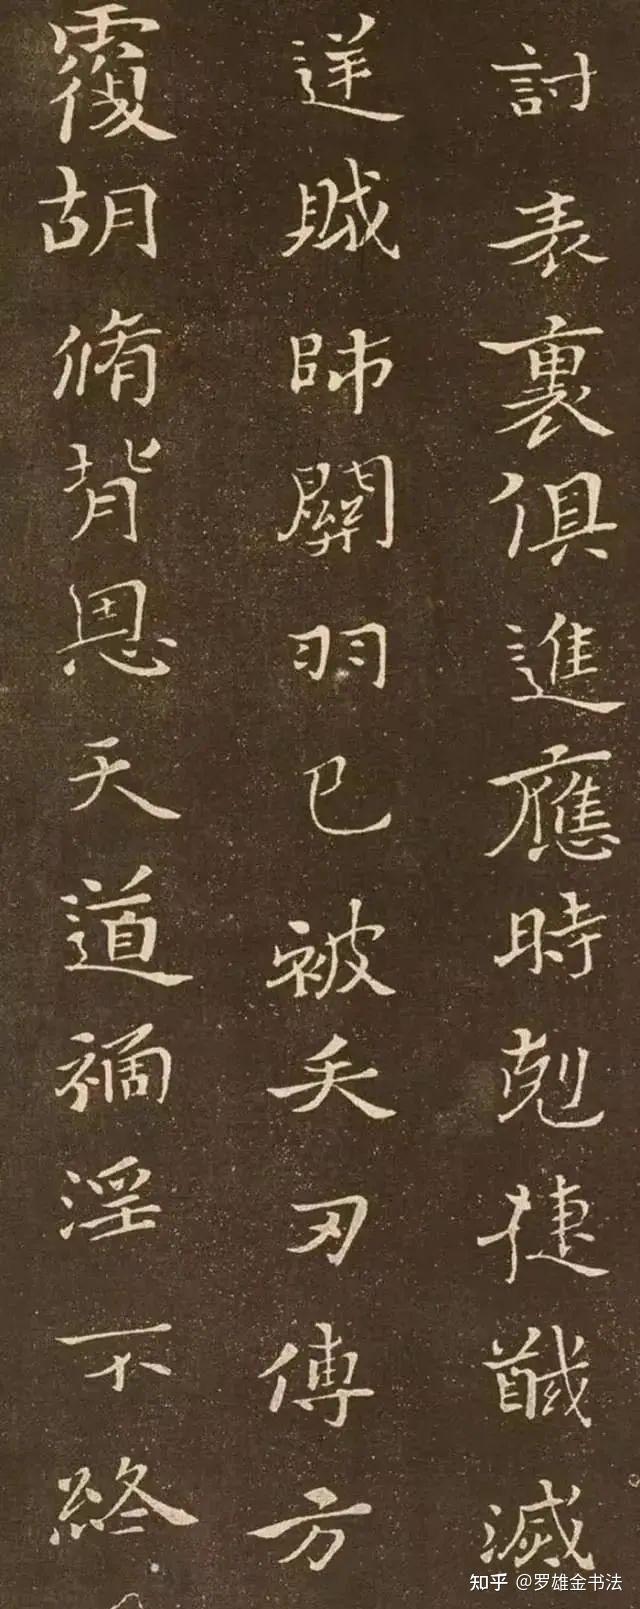 討表裏俱進應時剋捷馘滅
逆賊帥關羽已被矢刃傅方
覆胡脩背恩天道禍淫不終
知乎 @罗雄金书法